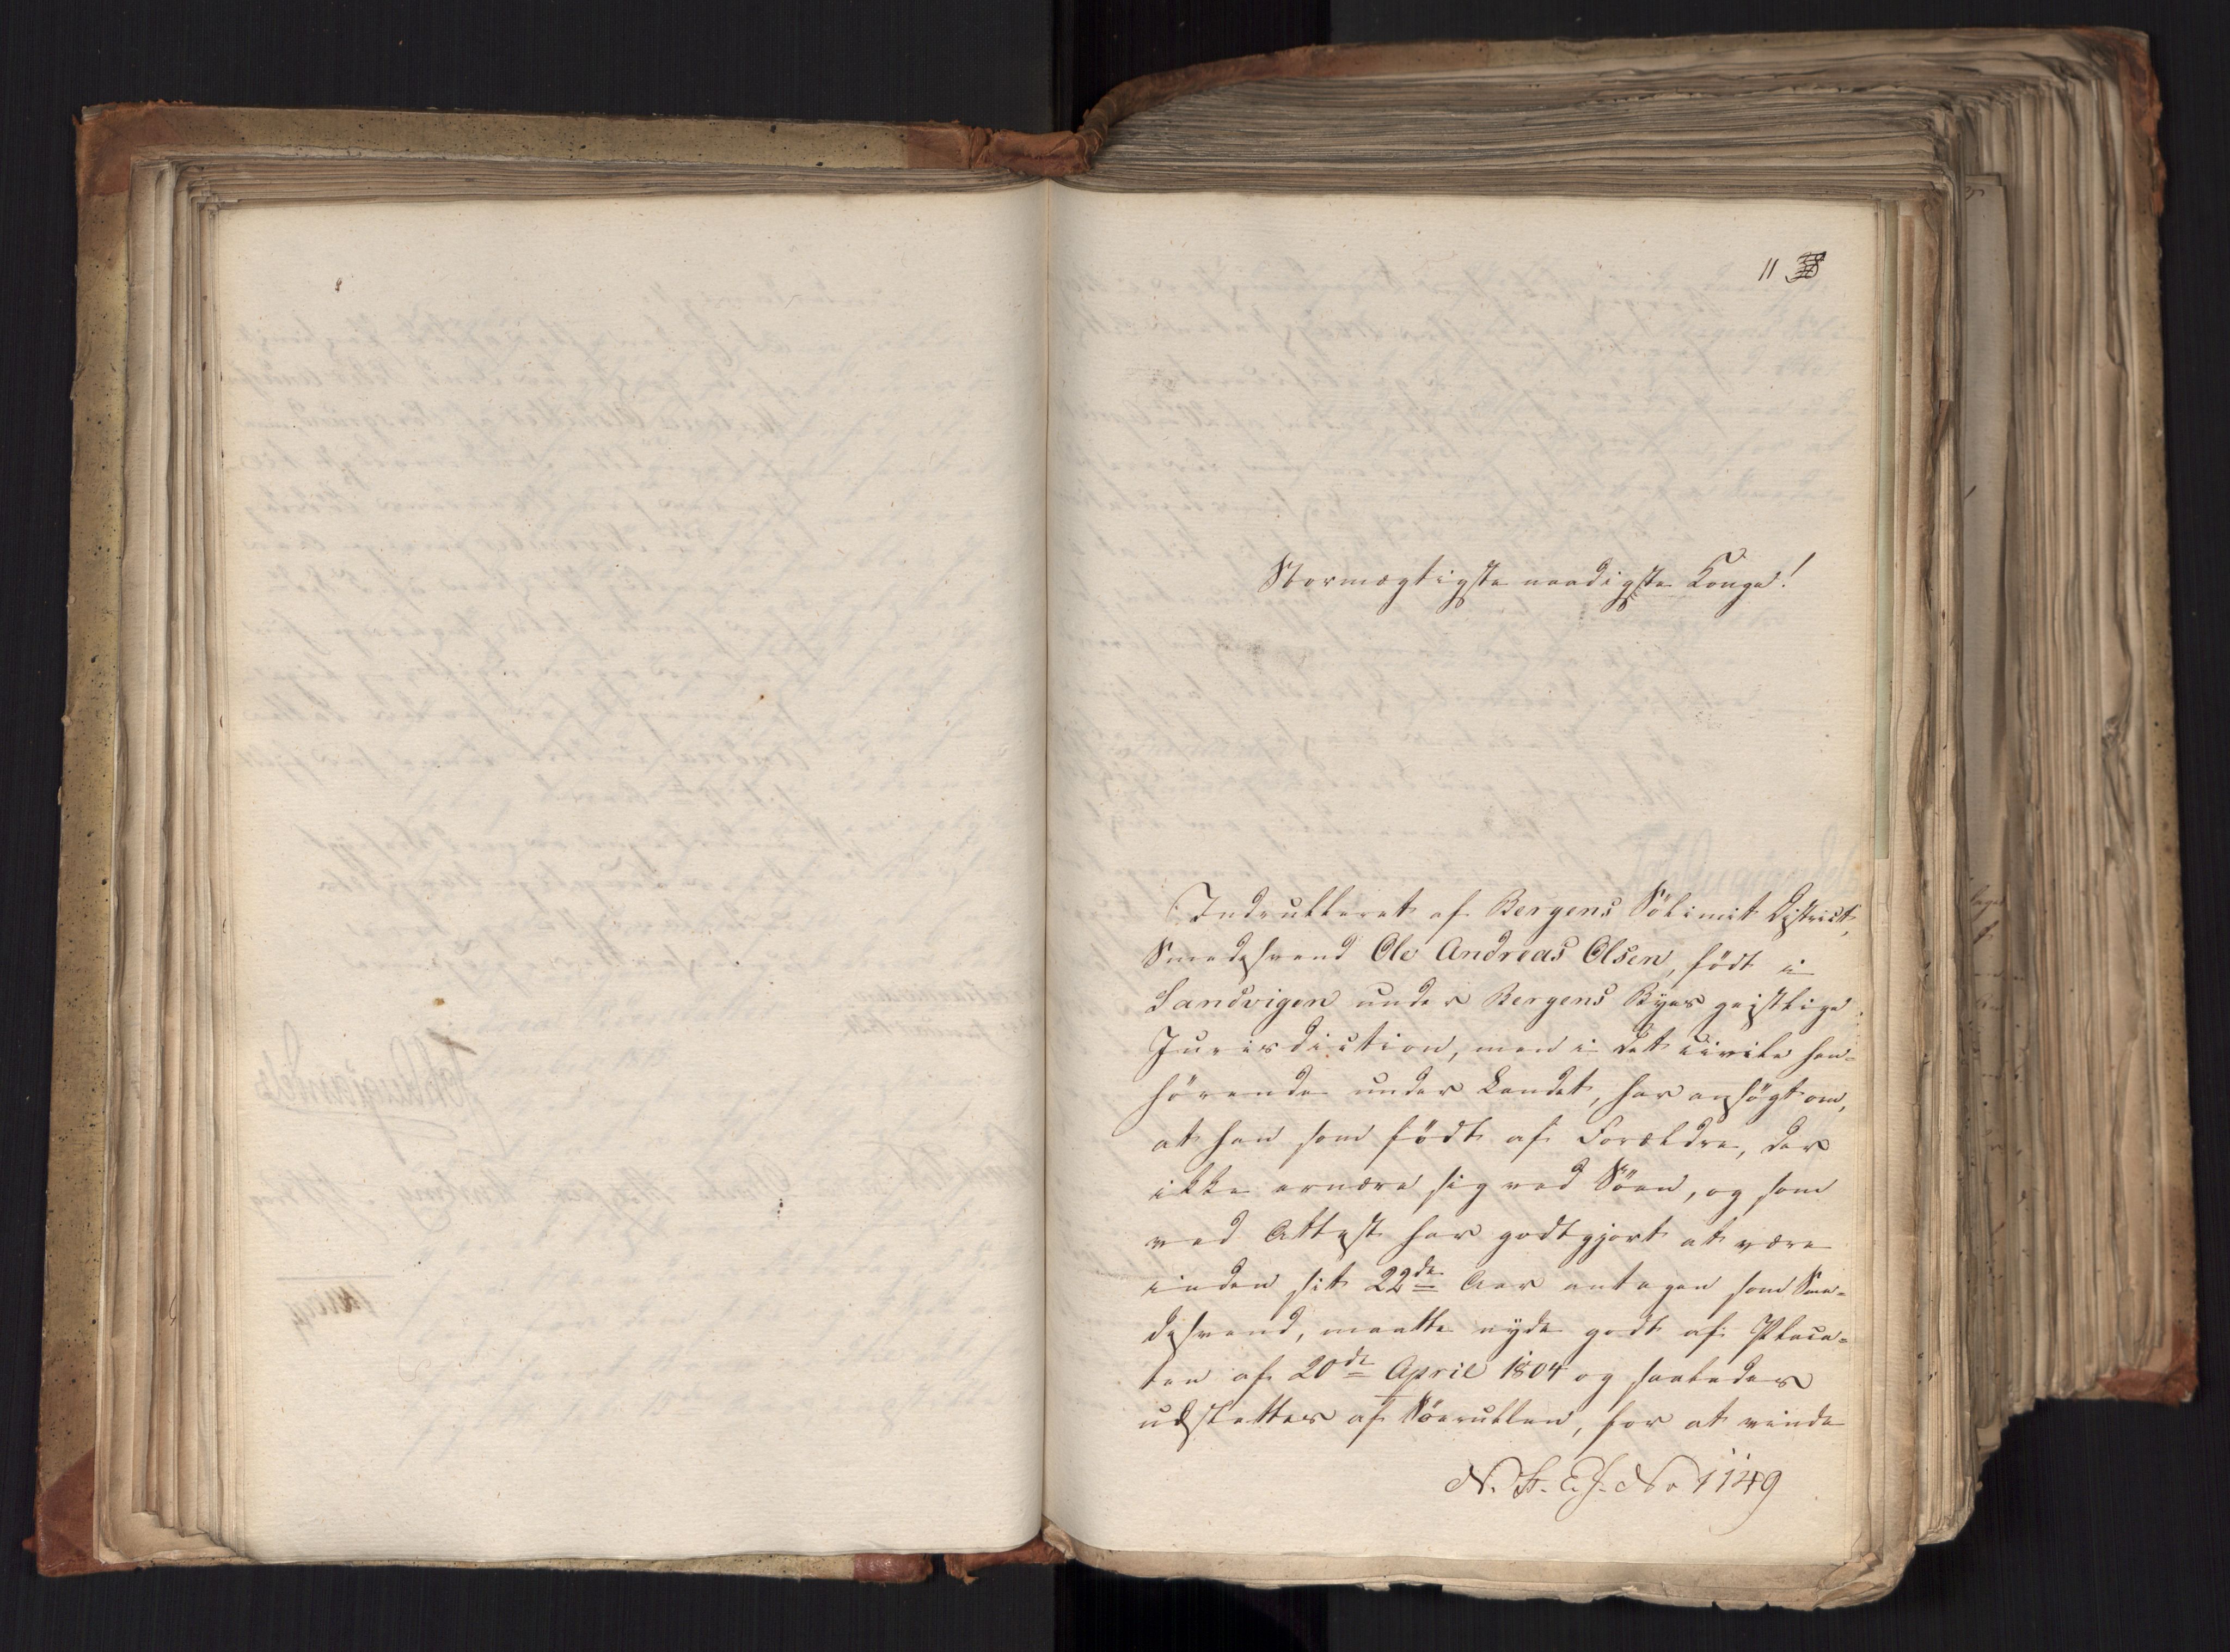 11
Stormægtigste naadigste Konge!
Indrulleret af Bergens Sölimit District,
Smedesvend Ole Andreas Olsen, födt i
Sandvigen under Bergens Byes geistlige
Jurisdiction, men i det civile hen-
hörende under Landet, har ansögt om,
at han som födt af Forældre, der
ikke ernære sig ved Söen, og som
ved Attest har godtgjort at være
inden sit 22de Aar antagen som Sme-
desvend, maatte nyde godt af Placa-
ten af 20de April 1804 og saaledes
udslettes af Söerullen, for at vinde
No 1149